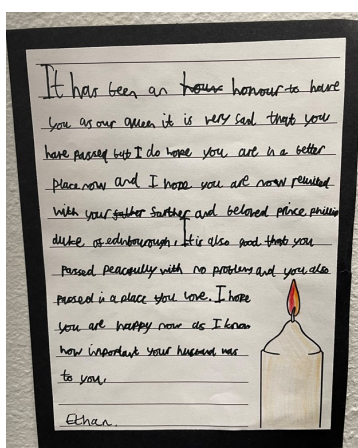 It has been an honour to have
you as our queen it is very sad that you
have passed but I do hope you are in a better
place now and I hope you are now reunited
with your father farther and beloved prince phillip
duke of edinbourough. It is also good that you
passed peacefully with no problems and you also
passed in a place you love. I hope
you are happy now as I know
how important your husband was
to you.
Ethan.